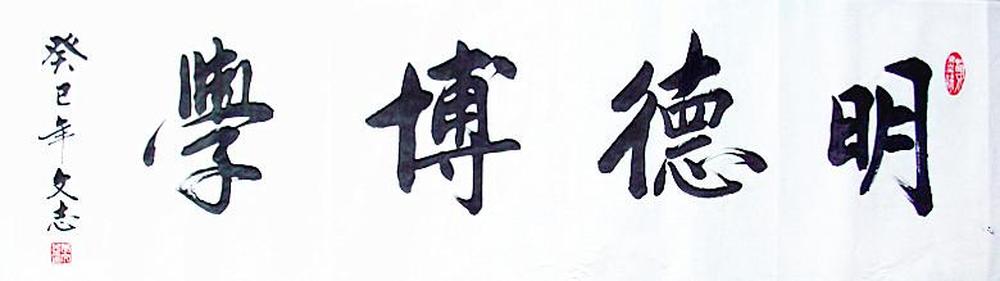 明德博學
癸巳年文志